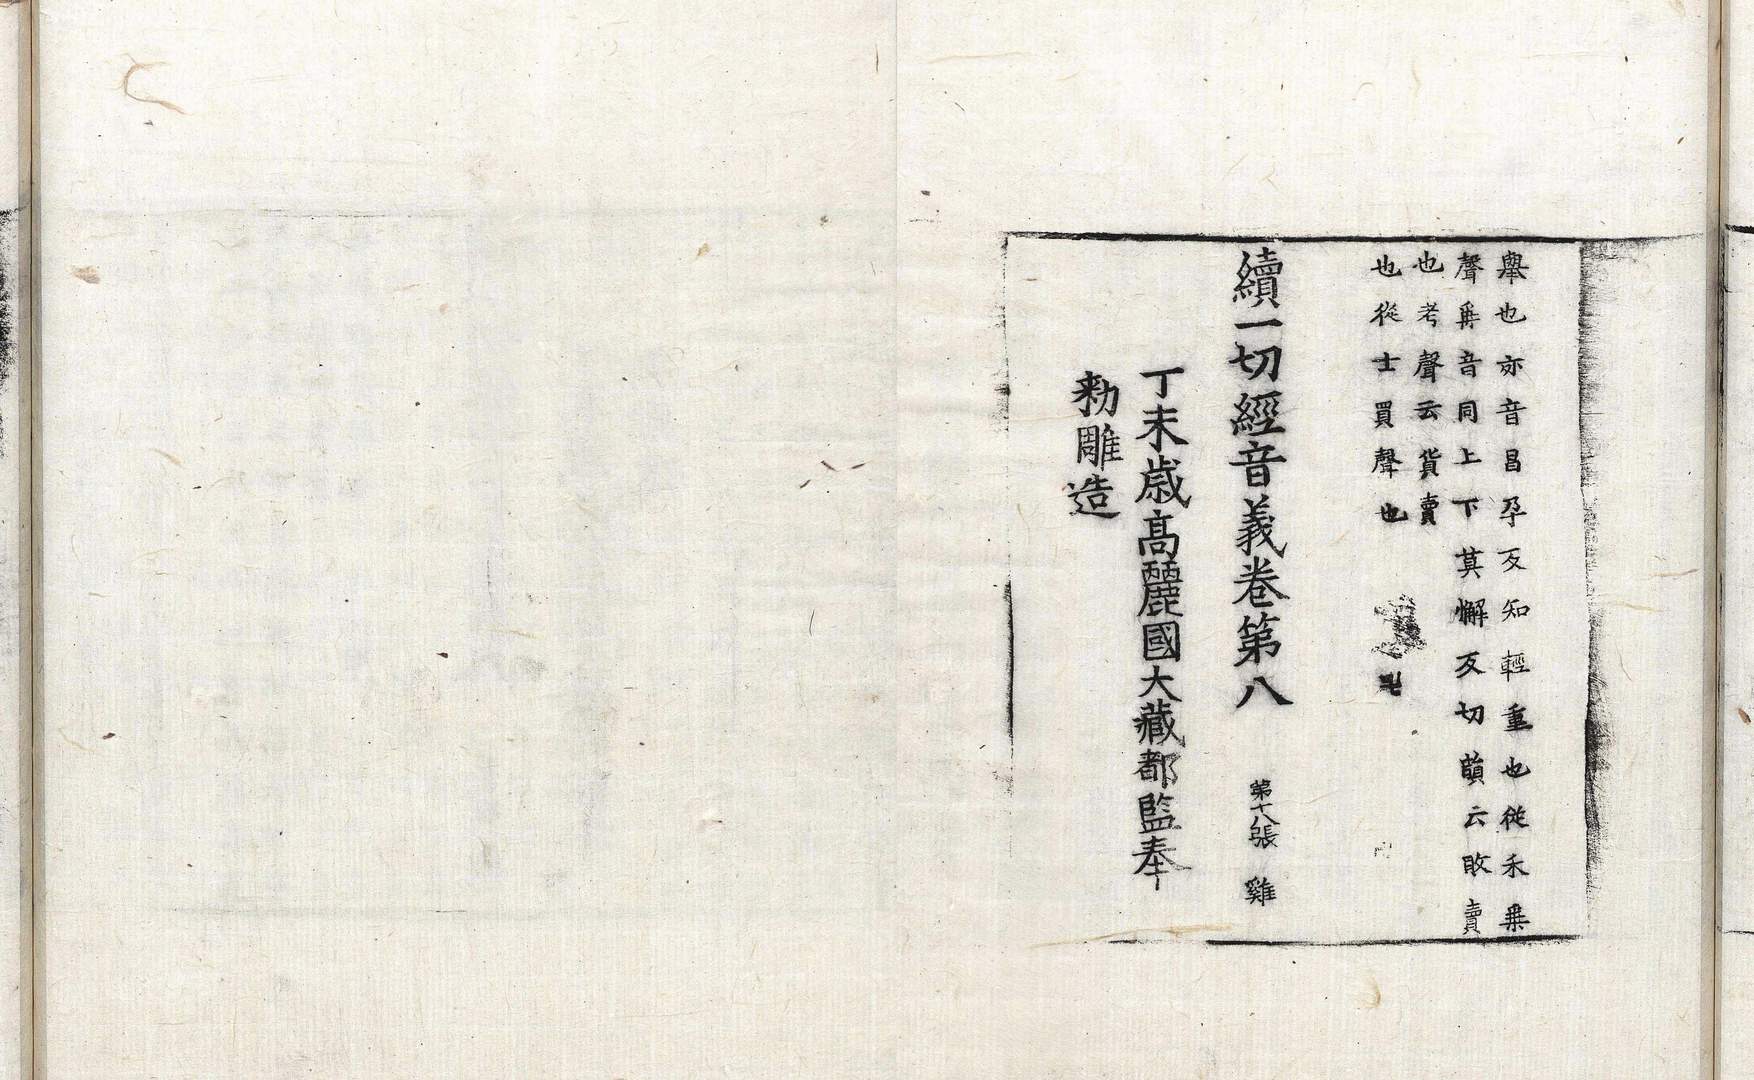 舉也亦音昌孕反知輕重也從禾乗
聲乗音同上下莫懈反切韻云敗賣
也考聲云貨賣
也從士買聲也
續一切經音義卷第八
第十八張 雞
丁未歲髙麗國大藏都監奉
勑雕造